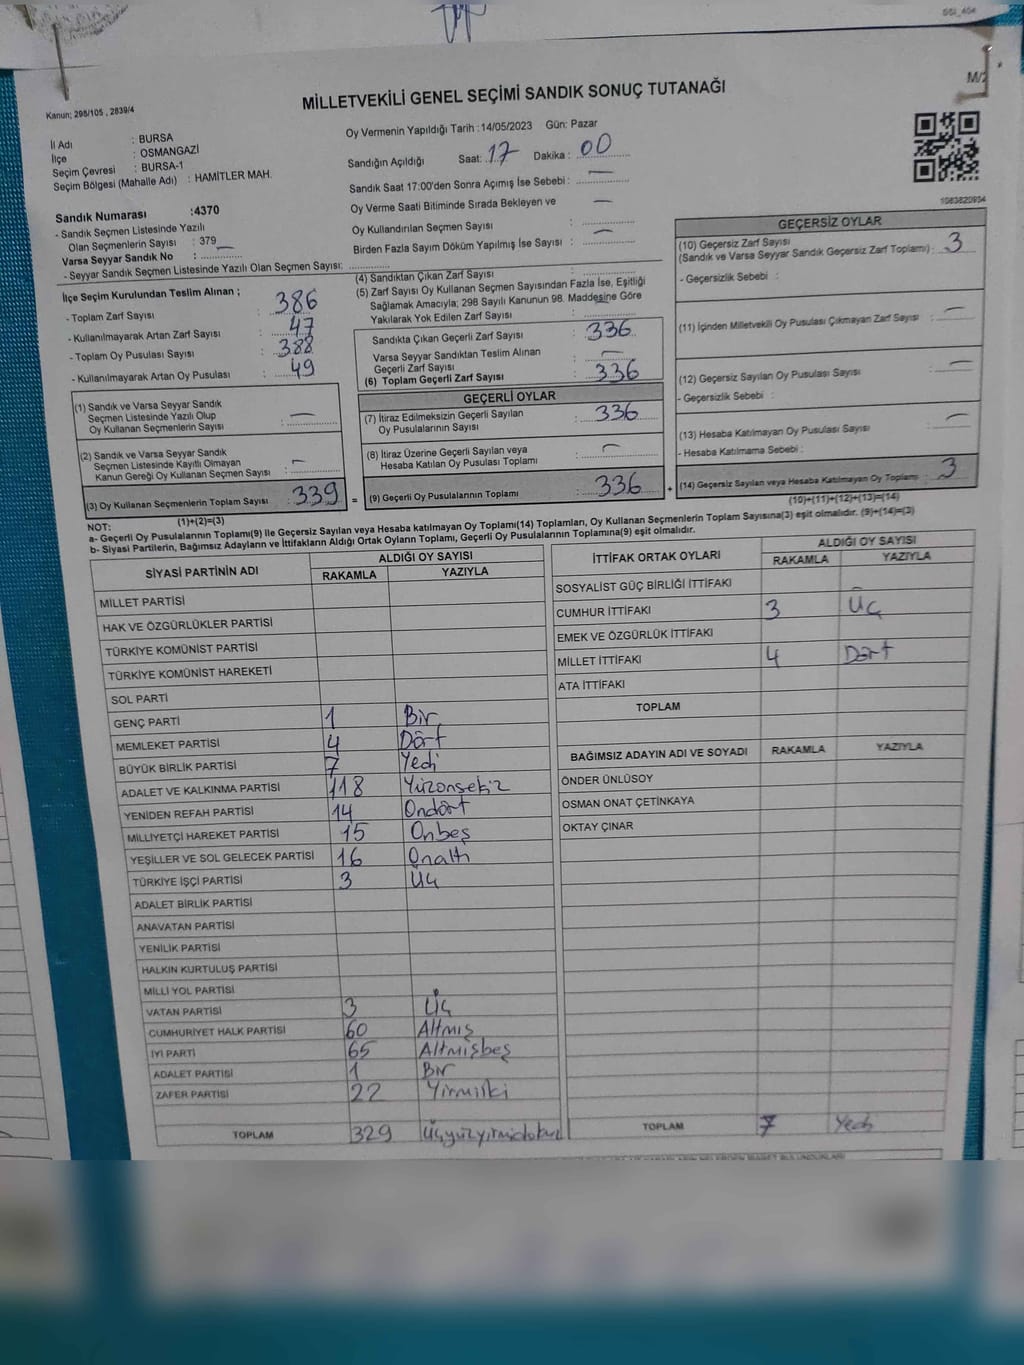 SSI_404
Kanun; 298/105 , 2839/4
MİLLETVEKİLİ GENEL SEÇİMİ SANDIK SONUÇ TUTANAĞI
M/2
İl Adı : BURSA
İlçe : OSMANGAZİ
Seçim Çevresi : BURSA-1
Seçim Bölgesi (Mahalle Adı) : HAMİTLER MAH.
Oy Vermenin Yapıldığı Tarih :14/05/2023 Gün: Pazar
Sandığın Açıldığı Saat: 17 Dakika : 00
Sandık Saat 17:00'den Sonra Açımış İse Sebebi : —
Oy Verme Saati Bitiminde Sırada Bekleyen ve —
Oy Kullandırılan Seçmen Sayısı :
Birden Fazla Sayım Döküm Yapılmış İse Sayısı : —
1083820934
Sandık Numarası :4370
- Sandık Seçmen Listesinde Yazılı
Olan Seçmenlerin Sayısı : 379
Varsa Seyyar Sandık No : —
- Seyyar Sandık Seçmen Listesinde Yazılı Olan Seçmen Sayısı:
İlçe Seçim Kurulundan Teslim Alınan ;
- Toplam Zarf Sayısı : 386
- Kullanılmayarak Artan Zarf Sayısı : 47
- Toplam Oy Pusulası Sayısı : 388
- Kullanılmayarak Artan Oy Pusulası : 49
(1) Sandık ve Varsa Seyyar Sandık
Seçmen Listesinde Yazılı Olup
Oy Kullanan Seçmenlerin Sayısı : —
(2) Sandık ve Varsa Seyyar Sandık
Seçmen Listesinde Kayıtlı Olmayan
Kanun Gereği Oy Kullanan Seçmen Sayısı : —
(3) Oy Kullanan Seçmenlerin Toplam Sayısı : 339
(1)+(2)=(3)
(4) Sandıktan Çıkan Zarf Sayısı :
(5) Zarf Sayısı Oy Kullanan Seçmen Sayısından Fazla İse, Eşitliği
Sağlamak Amacıyla; 298 Sayılı Kanunun 98. Maddesine Göre
Yakılarak Yok Edilen Zarf Sayısı : —
Sandıkta Çıkan Geçerli Zarf Sayısı : 336
Varsa Seyyar Sandıktan Teslim Alınan
Geçerli Zarf Sayısı : —
(6) Toplam Geçerli Zarf Sayısı : 336
GEÇERLİ OYLAR
(7) İtiraz Edilmeksizin Geçerli Sayılan
Oy Pusulalarının Sayısı : 336
(8) İtiraz Üzerine Geçerli Sayılan veya
Hesaba Katılan Oy Pusulası Toplamı : —
= (9) Geçerli Oy Pusulalarının Toplamı : 336 +
GEÇERSİZ OYLAR
(10) Geçersiz Zarf Sayısı
(Sandık ve Varsa Seyyar Sandık Geçersiz Zarf Toplamı) : 3
- Geçersizlik Sebebi :
(11) İçinden Milletvekili Oy Pusulası Çıkmayan Zarf Sayısı : —
(12) Geçersiz Sayılan Oy Pusulası Sayısı : —
- Geçersizlik Sebebi :
(13) Hesaba Katılmayan Oy Pusulası Sayısı : —
- Hesaba Katılmama Sebebi :
(14) Geçersiz Sayılan veya Hesaba Katılmayan Oy Toplamı : 3
(10)+(11)+(12)+(13)=(14)
NOT:
a- Geçerli Oy Pusulalarının Toplamı(9) ile Geçersiz Sayılan veya Hesaba katılmayan Oy Toplamı(14) Toplamları, Oy Kullanan Seçmenlerin Toplam Sayısına(3) eşit olmalıdır. (9)+(14)=(3)
b- Siyasi Partilerin, Bağımsız Adayların ve İttifakların Aldığı Ortak Oyların Toplamı, Geçerli Oy Pusulalarının Toplamına(9) eşit olmalıdır.
SİYASİ PARTİNİN ADI ALDIĞI OY SAYISI
RAKAMLA YAZIYLA
MİLLET PARTİSİ
HAK VE ÖZGÜRLÜKLER PARTİSİ
TÜRKİYE KOMÜNİST PARTİSİ
TÜRKİYE KOMÜNİST HAREKETİ
SOL PARTİ
GENÇ PARTİ 1 Bir
MEMLEKET PARTİSİ 4 Dört
BÜYÜK BİRLİK PARTİSİ 7 Yedi
ADALET VE KALKINMA PARTİSİ 118 Yüzonsekiz
YENİDEN REFAH PARTİSİ 14 Ondört
MİLLİYETÇİ HAREKET PARTİSİ 15 Onbeş
YEŞİLLER VE SOL GELECEK PARTİSİ 16 Onaltı
TÜRKİYE İŞÇİ PARTİSİ 3 Üç
ADALET BİRLİK PARTİSİ
ANAVATAN PARTİSİ
YENİLİK PARTİSİ
HALKIN KURTULUŞ PARTİSİ
MİLLİ YOL PARTİSİ
VATAN PARTİSİ 3 Üç
CUMHURİYET HALK PARTİSİ 60 Altmış
İYİ PARTİ 65 Altmışbeş
ADALET PARTİSİ 1 Bir
ZAFER PARTİSİ 22 Yirmiiki
TOPLAM 329 Üçyüzyirmidokuz
İTTİFAK ORTAK OYLARI ALDIĞI OY SAYISI
RAKAMLA YAZIYLA
SOSYALİST GÜÇ BİRLİĞİ İTTİFAKI
CUMHUR İTTİFAKI 3 Üç
EMEK VE ÖZGÜRLÜK İTTİFAKI
MİLLET İTTİFAKI 4 Dört
ATA İTTİFAKI
TOPLAM
BAĞIMSIZ ADAYIN ADI VE SOYADI RAKAMLA YAZIYLA
ÖNDER ÜNLÜSOY
OSMAN ONAT ÇETİNKAYA
OKTAY ÇINAR
TOPLAM 7 Yedi